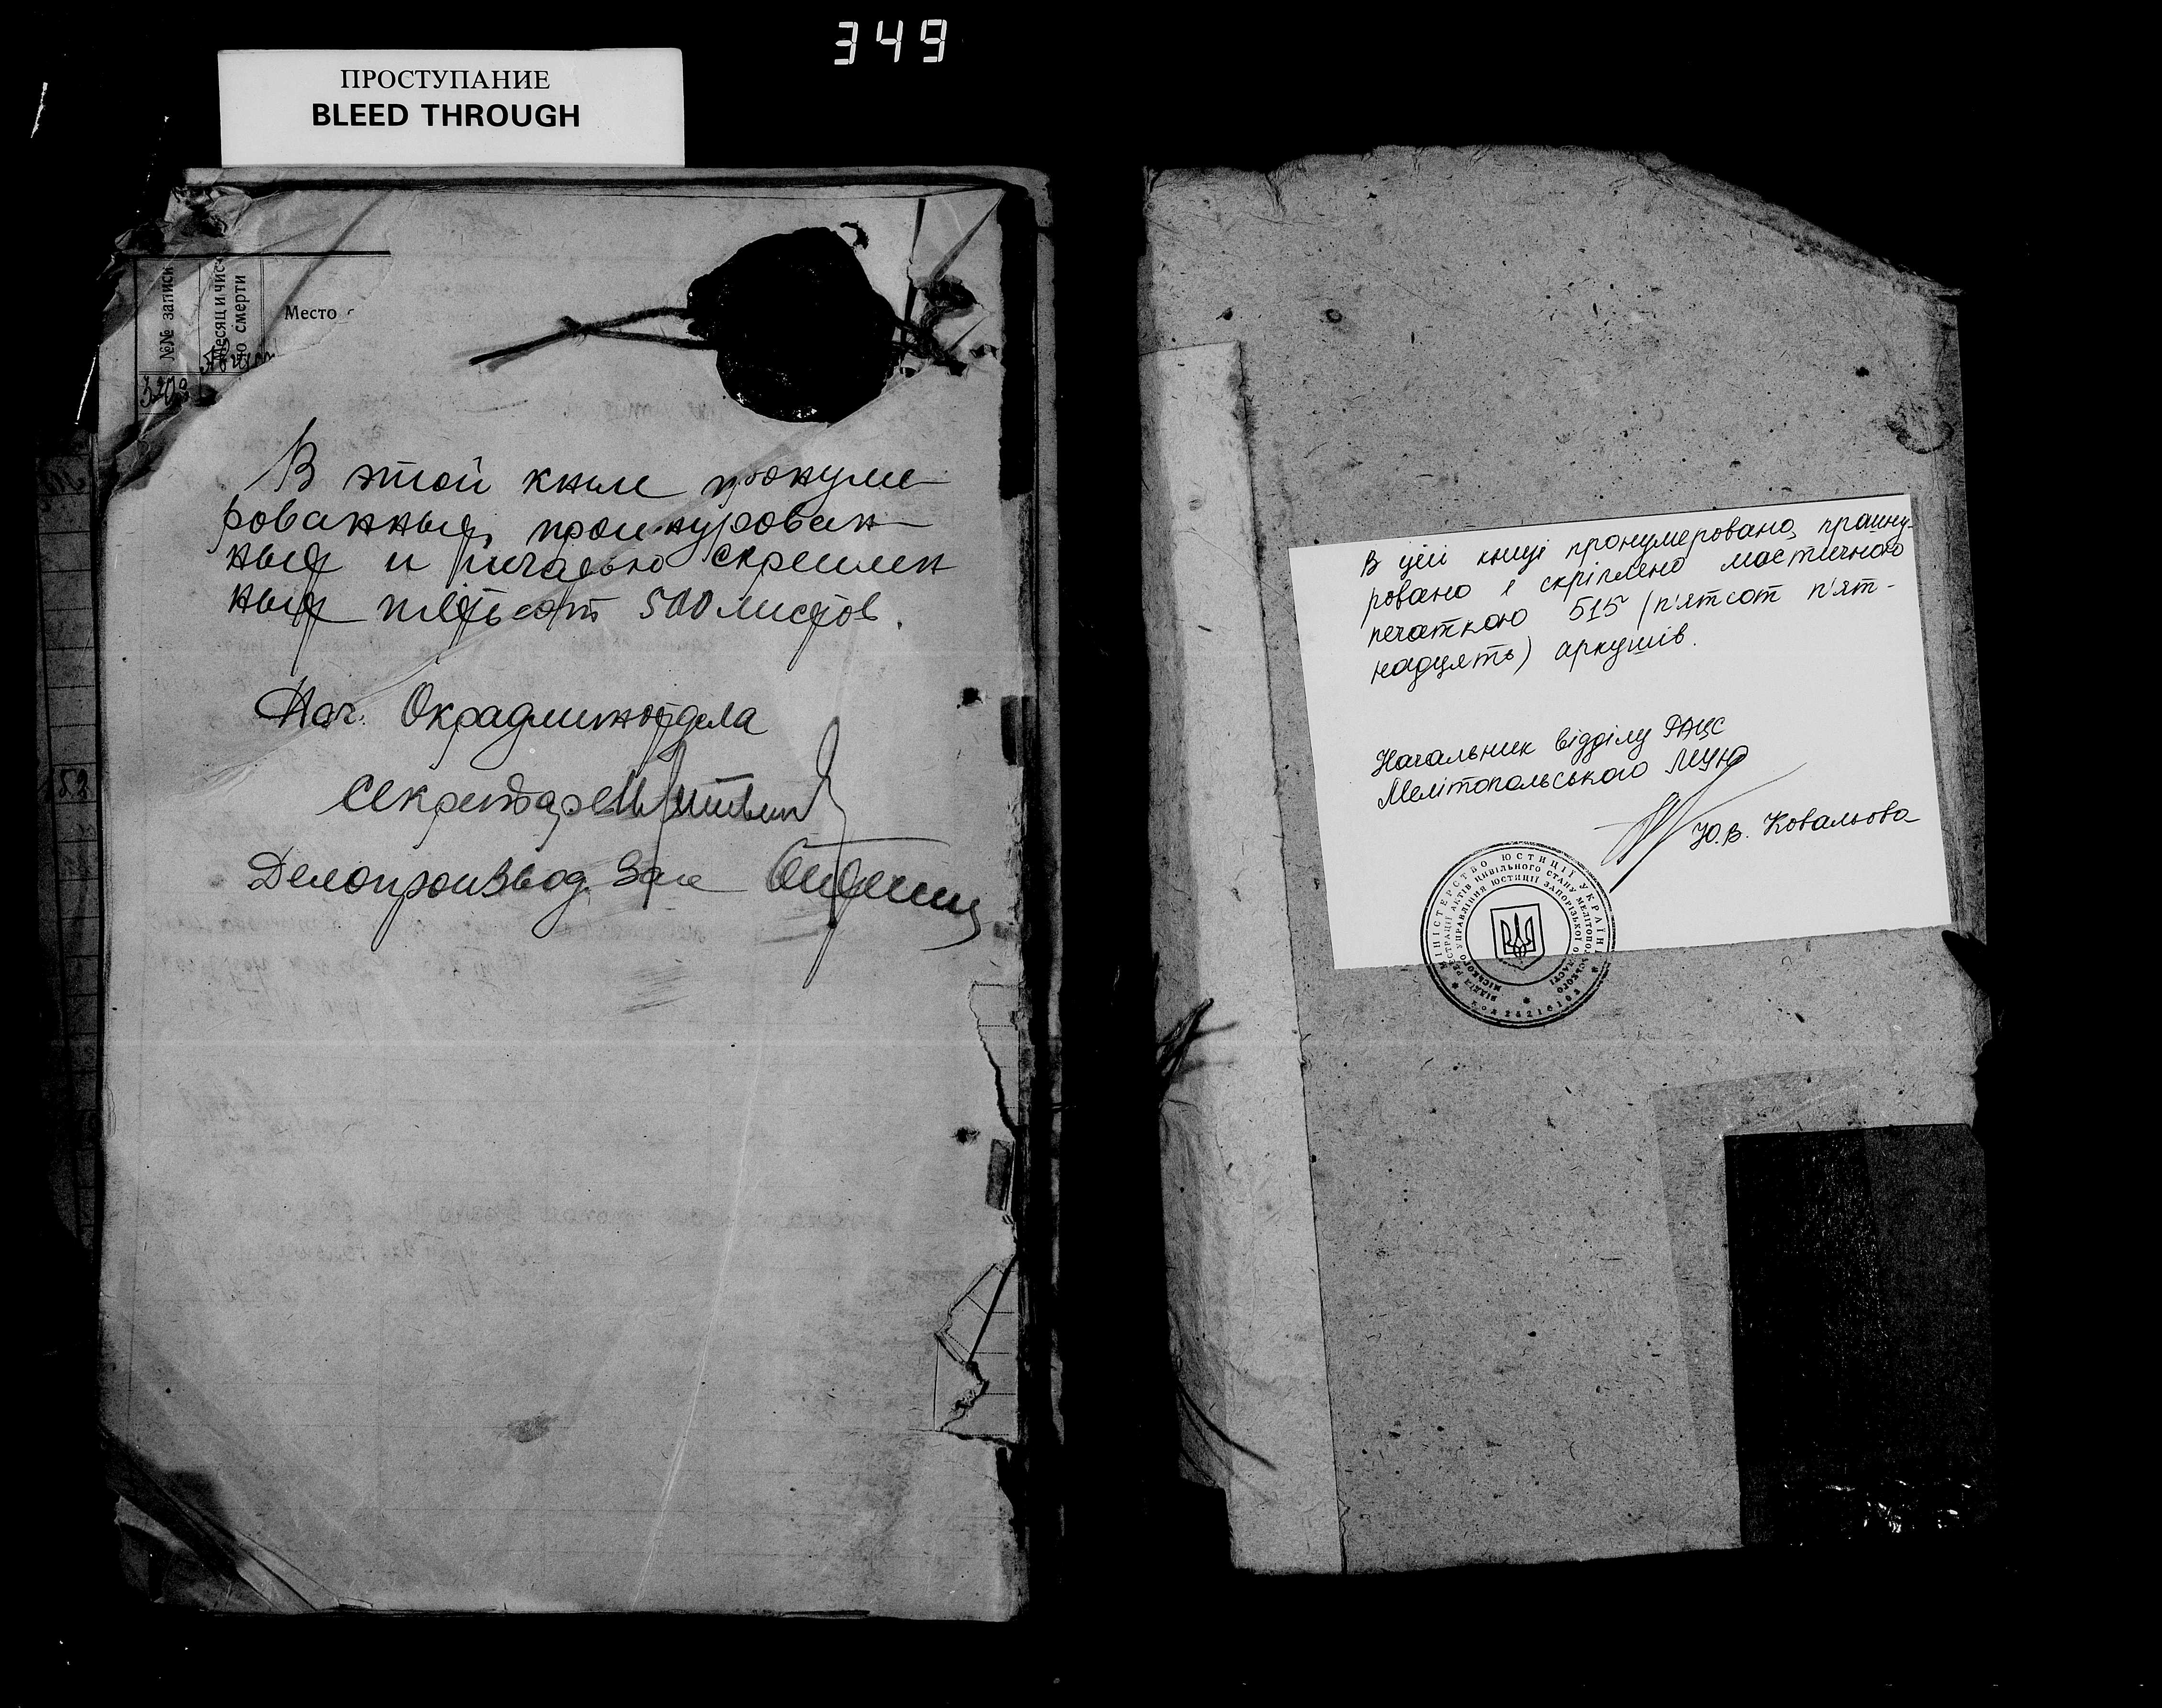 349
ПРОСТУПАНИЕ
BLEED THROUGH
№№ записи
Месяц и чис
ло смерти
Место
В этой книге пронуме-
рованных, прошнурован-
ных и печатью скреплен
ных пятьсот 500 листов.
Нач. Окрадминотдела
Секретарь
Делопроизвод. Загс
В цій книзі пронумеровано, прошну-
ровано і скріплено мастичною
печаткою 515 (п'ятсот п'ят-
надцять) аркушів.
Начальник відділу РАЦС
Мелітопольського МУЮ
Ю.В. Ковальова
МІНІСТЕРСТВО ЮСТИЦІЇ УКРАЇНИ
ВІДДІЛ РЕЄСТРАЦІЇ АКТІВ ЦИВІЛЬНОГО СТАНУ МЕЛІТОПОЛЬСЬКОГО
МІСЬКОГО УПРАВЛІННЯ ЮСТИЦІЇ ЗАПОРІЗЬКОЇ ОБЛАСТІ